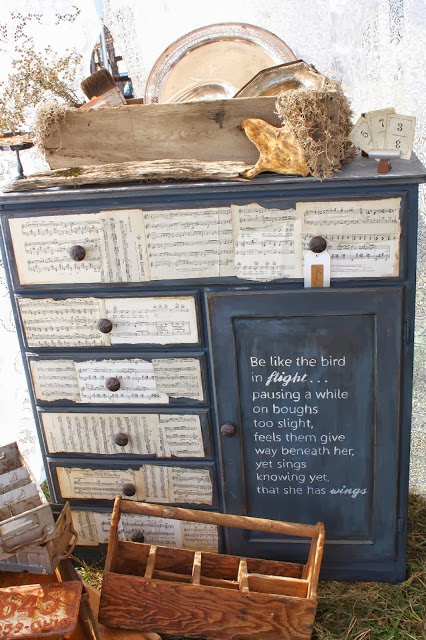 3
5
Be like the bird
in flight...
pausing a while
on boughs
too slight,
feels them give
way beneath her,
yet sings
knowing yet,
that she has wings